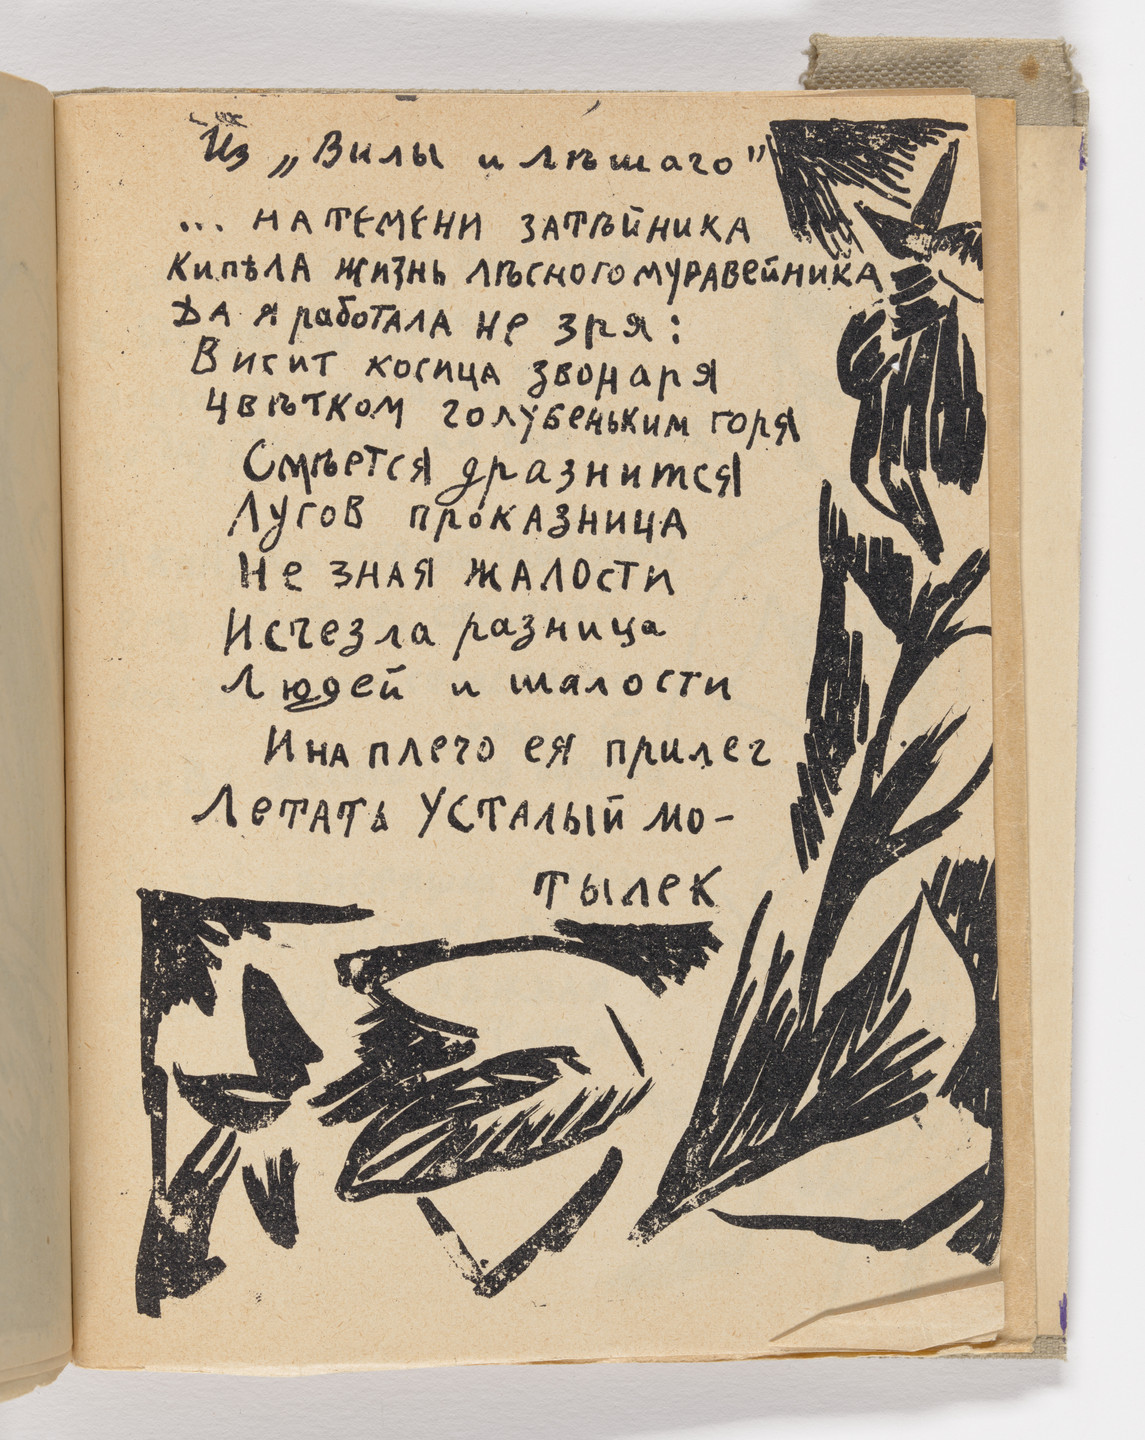 Из „Вилы и лѣшаго"
... на темени затѣйника
Кипѣла жизнь лѣсного муравейника
Да я работала не зря:
Висит косица звонаря
Цвѣтком голубеньким горя
Смѣется дразнится
Лугов проказница
Не зная жалости
Исчезла разница
Людей и шалости
И на плечо ея прилег
Летать усталый мо-
тылек